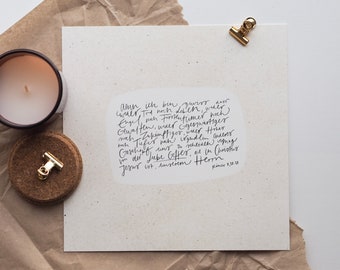 Denn ich bin gewiss dass
weder Tod noch Leben, weder
Engel noch Fürstentümer noch
Gewalten weder Gegenwärtiges
noch Zukünftiges weder Hohes
noch Tiefes noch
Geschöpf uns zu scheiden vermag
von der Liebe Gottes, die in Christus
Jesus ist, unserem Herrn
Römer 8,38